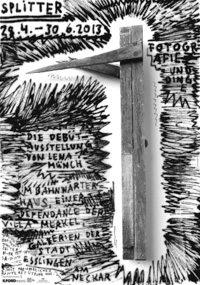 SPLITTER
28.4.–30.6.2013
FOTOGR
AFIE
UND
DINGE
DIE DEBUT
AUSSTELLUNG
VON LENA
MÜNCH
IM BAHNWÄRTER
HAUS, EINER
DEPENDANCE DER
VILLA MERKEL
GALERIEN DER
STADT
ESSLINGEN
AM
NECKAR